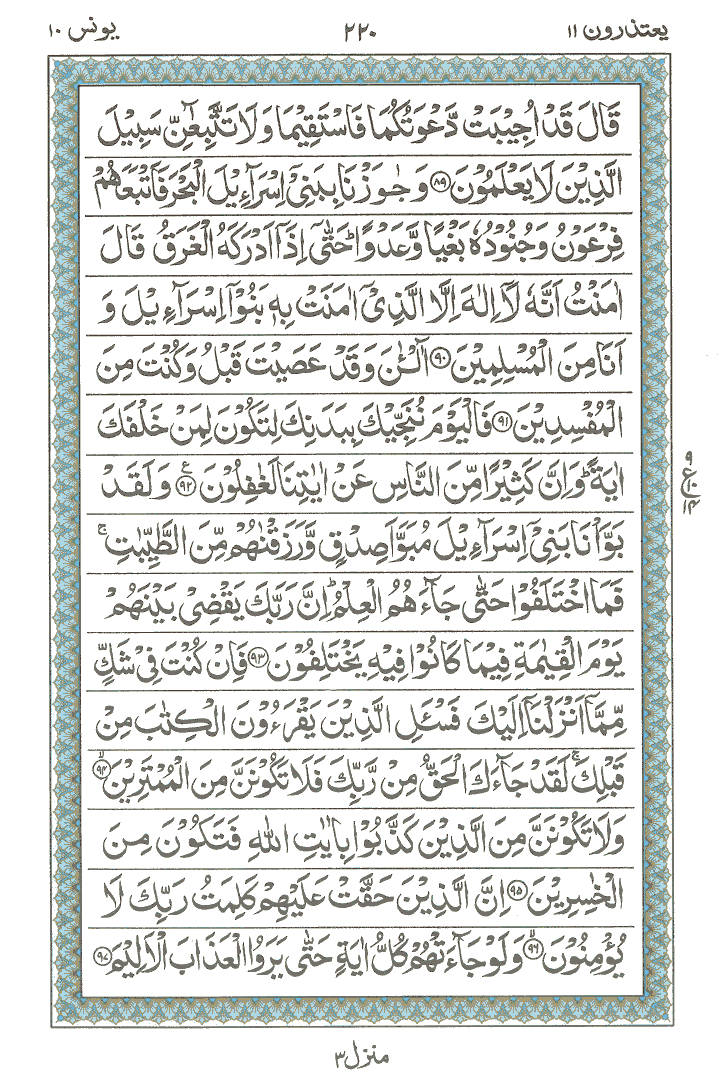 يعتذرون ١١
٢٢٠
يونس ١٠
قَالَ قَدْ اُجِيْبَتْ دَّعْوَتُكُمَا فَاسْتَقِيْمَا وَلَا تَتَّبِعٰٓنِّ سَبِيْلَ
الَّذِيْنَ لَا يَعْلَمُوْنَ ﴿۸۹﴾ وَجٰوَزْنَا بِبَنِيْٓ اِسْرَآءِيْلَ الْبَحْرَ فَاَتْبَعَهُمْ
فِرْعَوْنُ وَجُنُوْدُهٗ بَغْيًا وَّعَدْوًا ؕ حَتّٰۤى اِذَاۤ اَدْرَكَهُ الْغَرَقُ قَالَ
اٰمَنْتُ اَنَّهٗ لَاۤ اِلٰهَ اِلَّا الَّذِيْۤ اٰمَنَتْ بِهٖ بَنُوْۤا اِسْرَآءِيْلَ وَ
اَنَا مِنَ الْمُسْلِمِيْنَ ﴿۹۰﴾ آٰلْـٰٔنَ وَقَدْ عَصَيْتَ قَبْلُ وَكُنْتَ مِنَ
الْمُفْسِدِيْنَ ﴿۹۱﴾ فَالْيَوْمَ نُنَجِّيْكَ بِبَدَنِكَ لِتَكُوْنَ لِمَنْ خَلْفَكَ
اٰيَةً ؕ وَاِنَّ كَثِيْرًا مِّنَ النَّاسِ عَنْ اٰيٰتِنَا لَغٰفِلُوْنَ ﴿۹۲﴾ ع وَلَقَدْ
بَوَّاْنَا بَنِيْۤ اِسْرَآءِيْلَ مُبَوَّاَ صِدْقٍ وَّرَزَقْنٰهُمْ مِّنَ الطَّيِّبٰتِ ۚ
فَمَا اخْتَلَفُوْا حَتّٰى جَآءَهُمُ الْعِلْمُ ؕ اِنَّ رَبَّكَ يَقْضِيْ بَيْنَهُمْ
يَوْمَ الْقِيٰمَةِ فِيْمَا كَانُوْا فِيْهِ يَخْتَلِفُوْنَ ﴿۹۳﴾ فَاِنْ كُنْتَ فِيْ شَكٍّ
مِّمَّاۤ اَنْزَلْنَاۤ اِلَيْكَ فَسْـَٔلِ الَّذِيْنَ يَقْرَءُوْنَ الْكِتٰبَ مِنْ
قَبْلِكَ ۚ لَقَدْ جَآءَكَ الْحَقُّ مِنْ رَّبِّكَ فَلَا تَكُوْنَنَّ مِنَ الْمُمْتَرِيْنَ ﴿۹۴﴾ ۙ
وَلَا تَكُوْنَنَّ مِنَ الَّذِيْنَ كَذَّبُوْا بِاٰيٰتِ اللّٰهِ فَتَكُوْنَ مِنَ
الْخٰسِرِيْنَ ﴿۹۵﴾ اِنَّ الَّذِيْنَ حَقَّتْ عَلَيْهِمْ كَلِمَتُ رَبِّكَ لَا
يُؤْمِنُوْنَ ﴿۹۶﴾ ۙ وَلَوْ جَآءَتْهُمْ كُلُّ اٰيَةٍ حَتّٰى يَرَوُا الْعَذَابَ الْاَلِيْمَ ﴿۹۷﴾
منزل ٣